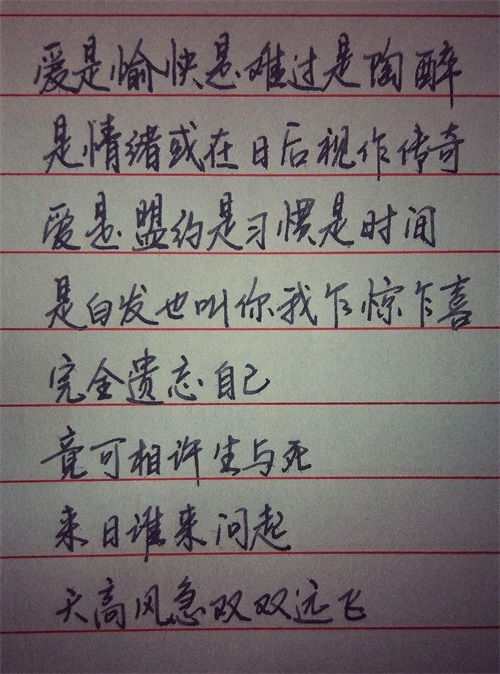 爱是愉快是难过是陶醉
是情绪或在日后视作传奇
爱是盟约是习惯是时间
是白发也叫你我乍惊乍喜
完全遗忘自己
竟可相许生与死
来日谁来问起
天高风急双双远飞